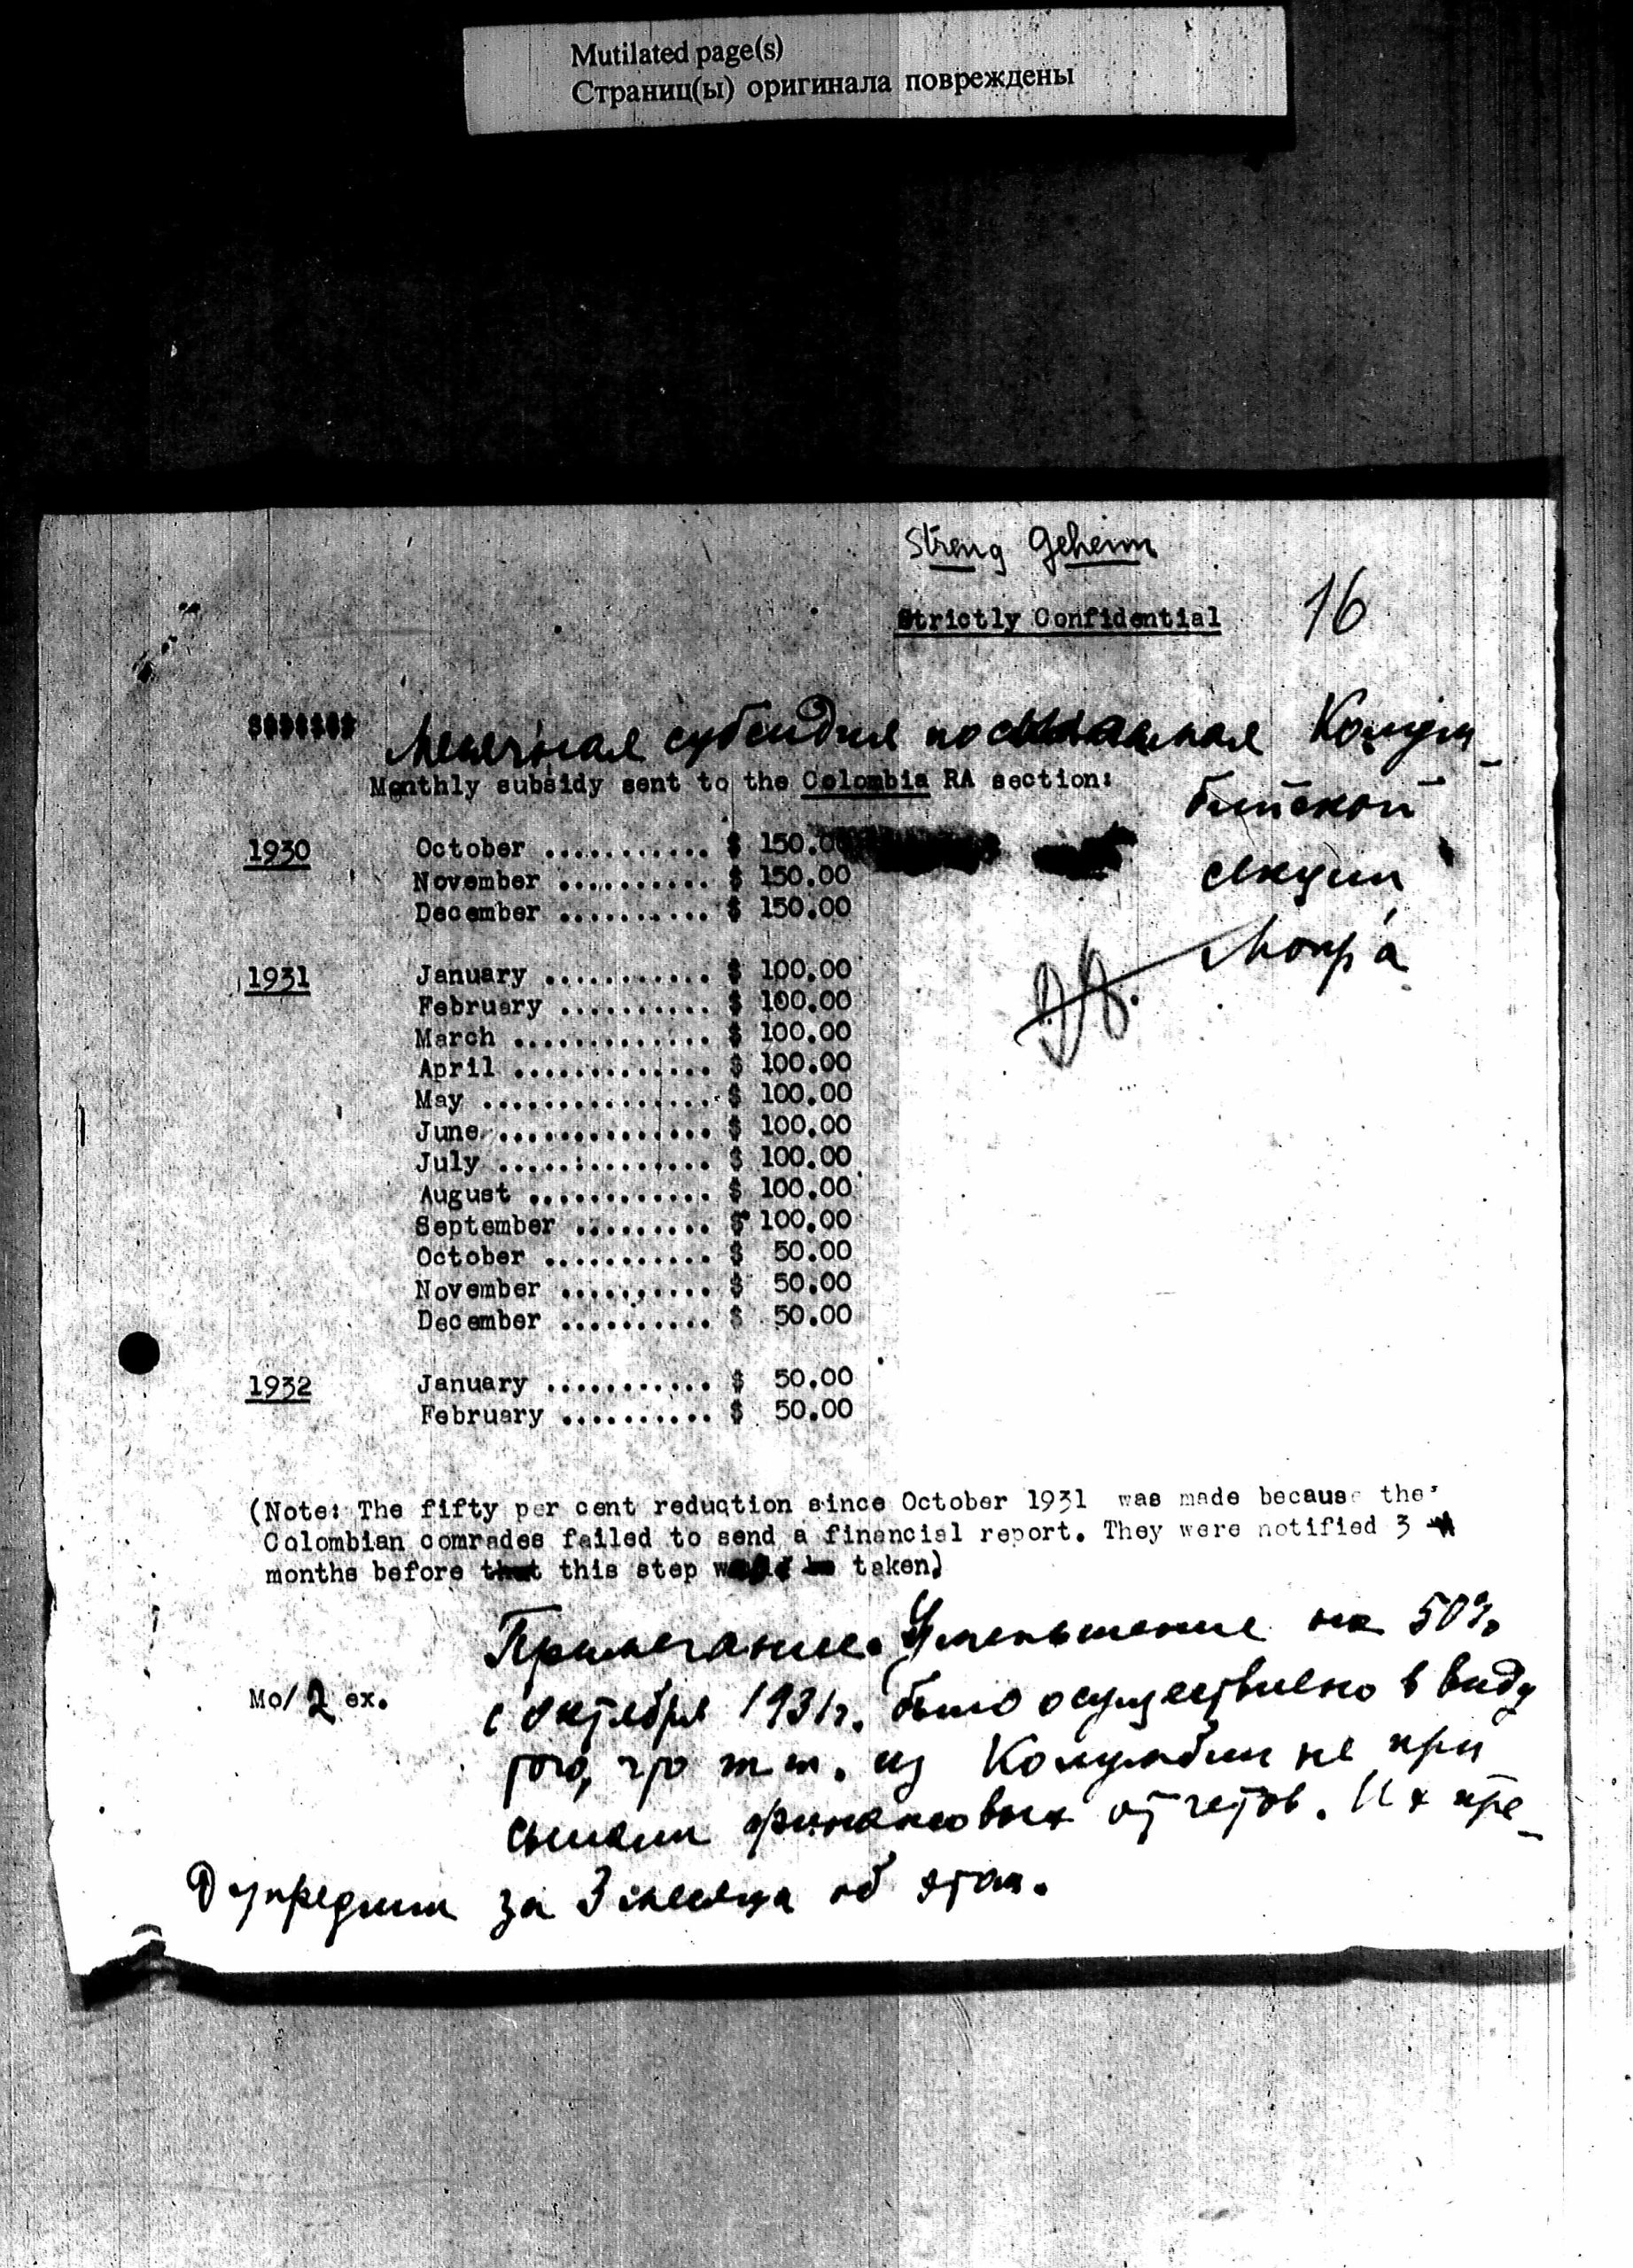 Mutilated page(s)
Страниц(ы) оригинала повреждены
Streng Geheim
Strictly Confidential
16
Месячная субсидия посылаемая Колум-
Monthly subsidy sent to the Colombia RA section:
бийской
секции
Мопр'а
1930
October ........... $ 150.00
November .......... $ 150.00
December .......... $ 150.00
1931
January ........... $ 100.00
February .......... $ 100.00
March ............. $ 100.00
April ............. $ 100.00
May ............... $ 100.00
June .............. $ 100.00
July .............. $ 100.00
August ............ $ 100.00
September ......... $ 100.00
October ........... $ 50.00
November .......... $ 50.00
December .......... $ 50.00
1932
January ........... $ 50.00
February .......... $ 50.00
(Note: The fifty per cent reduction since October 1931 was made because the
Colombian comrades failed to send a financial report. They were notified 3
months before that this step taken)
Примечание. Уменьшение на 50%
Mo/2 ex.
с октября 1931г. было осуществлено в виду
того, что т.т. из Колумбии не при
сылали финансовых отчетов. Их пре-
дупредили за 3 месяца об этом.